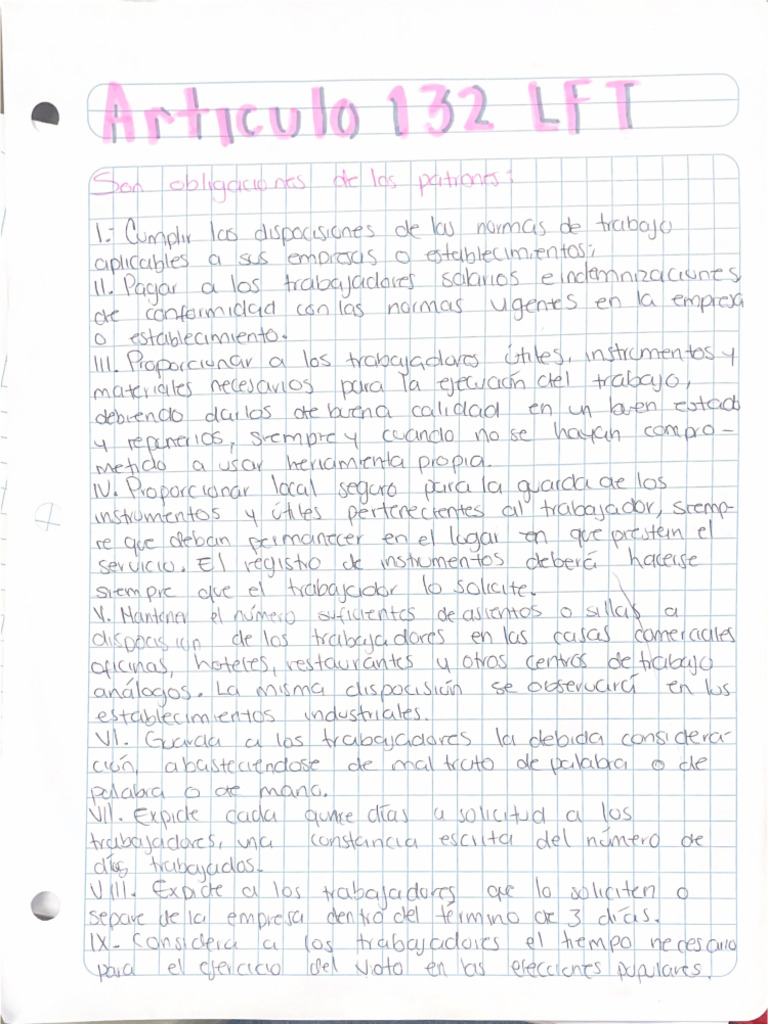 Artículo 132 LFT
Son obligaciones de los patrones:
I.- Cumplir las dispocisiones de las normas de trabajo
aplicables a sus empresas o establecimientos;
II. Pagar a los trabajadores salarios e indemnizaciones
de conformidad con las normas vigentes en la empresa
o establecimiento.
III. Proporcionar a los trabajadores útiles, instrumentos y
materiales necesarios para la ejecución del trabajo,
debiendo darlos de buena calidad en un buen estado
y reponerlos, siempre y cuando no se hayan compro-
metido a usar herramienta propia.
IV. Proporcionar local seguro para la guarda de los
instrumentos y útiles pertenecientes al trabajador, siemp-
re que deban permanecer en el lugar en que presten el
servicio. El registro de instrumentos deberá hacerse
siempre que el trabajador lo solicite.
V. Mantener el número suficientes de asientos o sillas a
dispocision de los trabajadores en las casas comerciales
oficinas, hoteles, restaurantes y otros centros de trabajo
análogos. La misma dispocisión se observará en los
establecimientos industriales.
VI. Guarda a los trabajadores la debida considera-
ción, abasteciéndose de mal trato de palabra o de
palabra o de mano.
VII. Expide cada quince días a solicitud a los
trabajadores, una constancia escrita del número de
días trabajados.
VIII. Expide a los trabajadores que lo soliciten o
separe de la empresa dentro del término de 3 días.
IX- Considera a los trabajadores el tiempo necesario
para el ejercicio del voto en las elecciones populares.